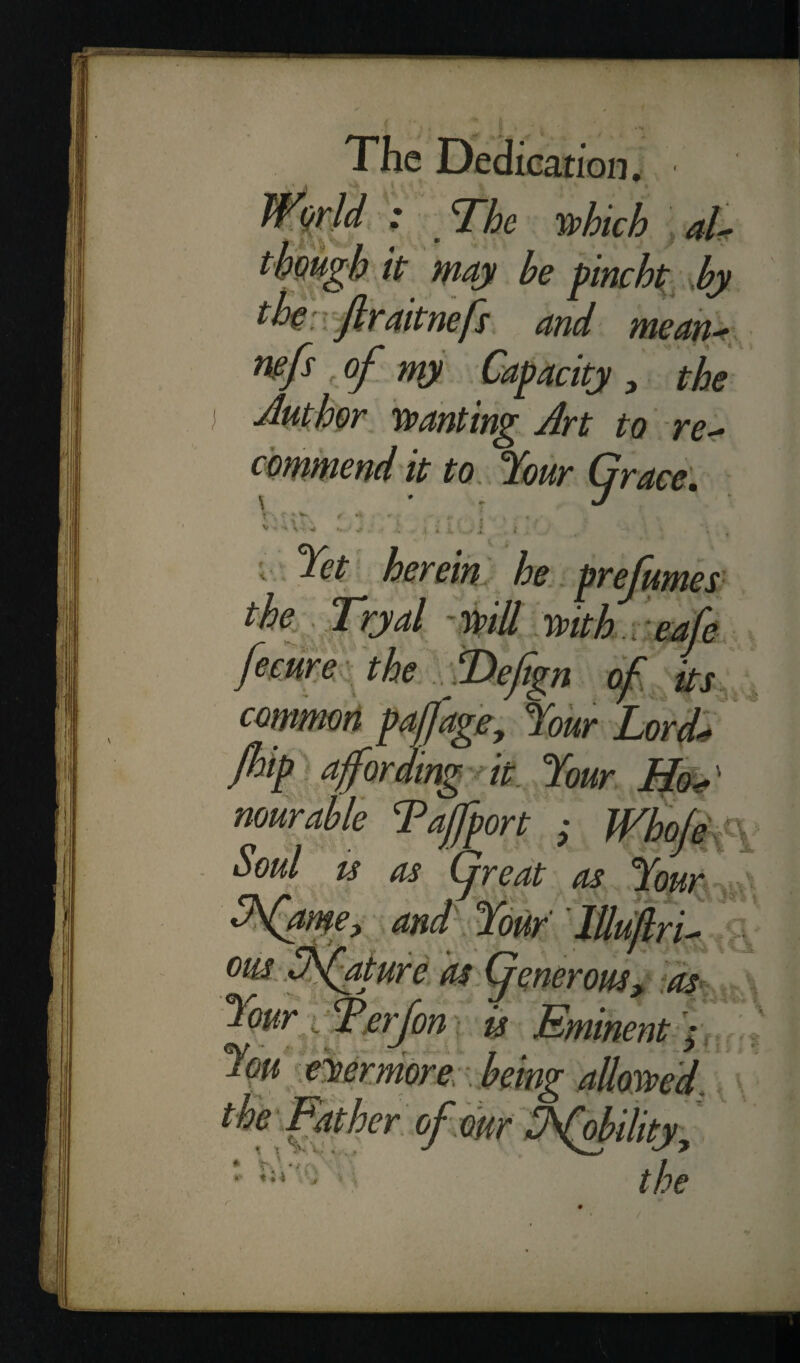 The Dedication.
World : The which al-
though it may be pincht by
the ſtraitneſs and mean-
neſs of my Capacity, the
Author wanting Art to re-
commend it to Your Grace.
Yet herein he preſumes
the Tryal will with eaſe
ſecure the Deſign of its
common paſſage, Your Lord-
ſhip affording it Your Ho-
nourable Paſſport ; Whoſe
Soul is as Great as Your
Name, and Your Illuſtri-
ous Nature as Generous, as
Your Perſon is Eminent ;
You evermore being allowed
the Father of our Nobility,
the